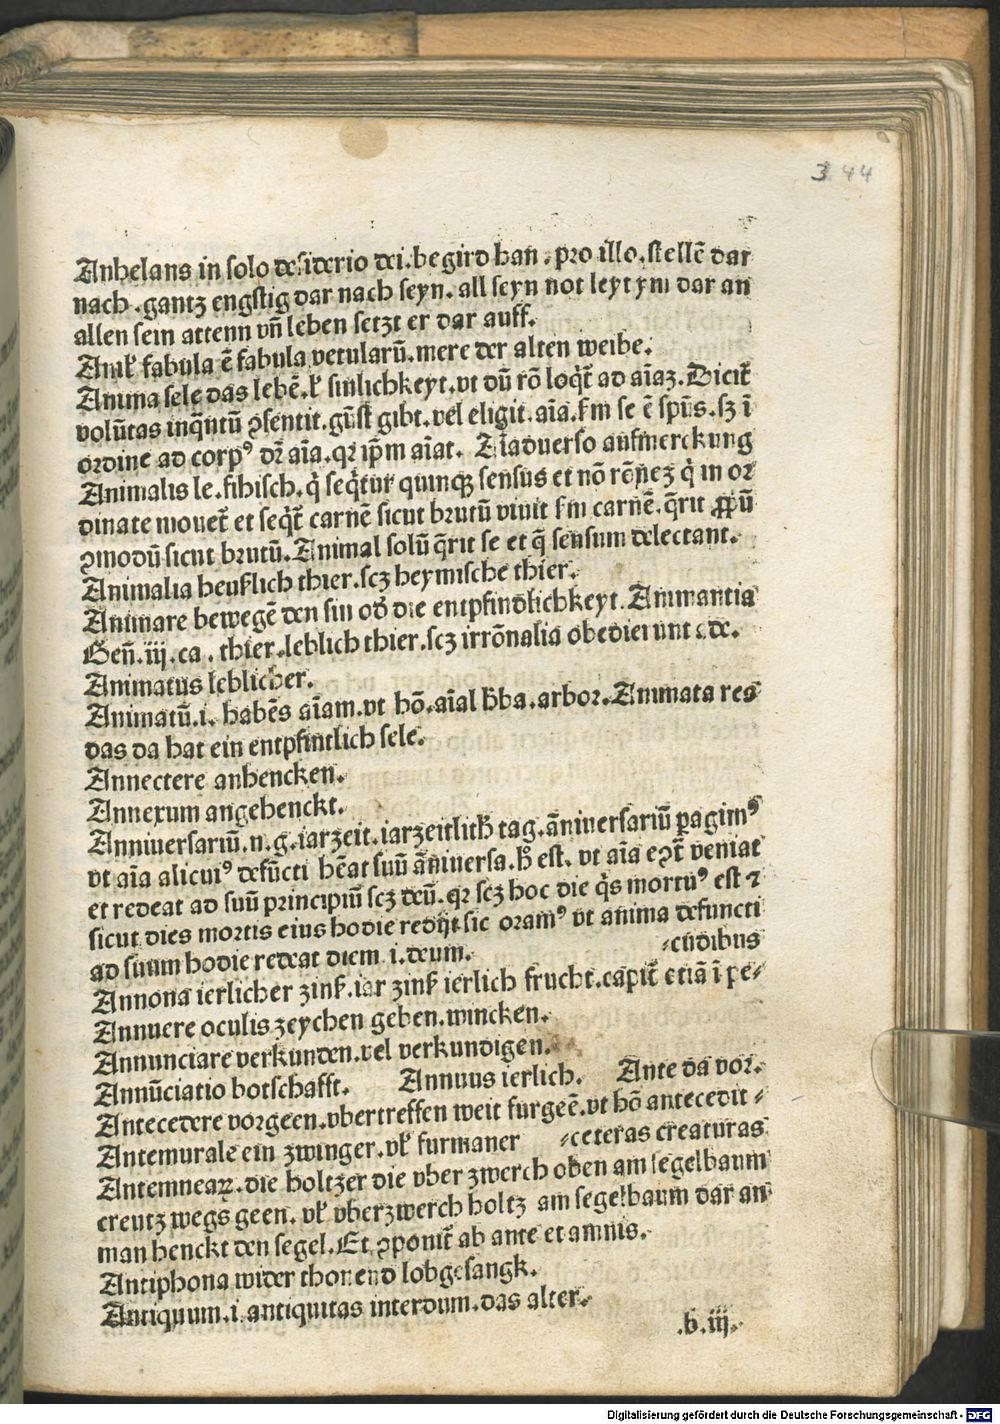 3 44
Anhelans in solo desiderio dei. begird han. pro illo. stellē dar
nach. gantz engstig dar nach seyn. all seyn not leyt ym dar an
allen sein attenn vñ leben setzt er dar auff.
fabula ē fabula vetularū. mere der alten weibe.
Anima sele das lebē. sinlichkeyt. vt dū rō ad aīaz. Dicit̄
volūtas sentit. gūst gibt. vel eligit. aīa. se ē spūs. sz ī
ordine ad corpꝰ dr̄ aīa. qꝛ ip̄m aīat. Aīaduerso aufmerckung
Animalis le. fihisch. q̇ seq̄tur quinqꝫ sensus et nō q̇ in or
dinate mouet̄ et seq̄t̄ carnē sicut brutū viuit carnē. q̄rit
ꝯmodū sicut brutū. Animal solū q̄rit se et q̄ sensum delectant.
Animalia heuslich thier. scz heymische thier.
Animare bewegē den sin od̄ die entpfindlichkeyt. Animantia
Geñ. iij. ca. thier. leblich thier. scz irrōnalia obediei unt ꝛc.
Animatus leblicher.
Animatū. i. habēs aīam. vt hō. aīal hꝰba. arbor. Animata res
das da hat ein entpfintlich sele.
Annectere anhencken.
Annexum angehenckt.
Anniuersariū. n. g. iarzeit. iarzeitlich tag. āniuersariū ꝑagimꝰ
vt aīa alicuiꝰ defūcti suū āniuersa. est. vt aīa veniat
et redeat ad suū principiū scz deū. qꝛ scz hoc die q̇s mortuꝰ est ⁊
sicut dies mortis eius hodie redijt sic oramꝰ vt anima defuncti
ad suum hodie redeat diem i. deum. ⸗cūdibus
Annona ierlicher zinß. iar zinß ierlich frucht. capit̄ etiā ī pe⸗
Annuere oculis zeychen geben. wincken.
Annunciare verkunden. vel verkundigen.
Annūciatio botschafft. Annuus ierlich. Ante da vor.
Antecedere vorgeen. vbertreffen weit furgeē. vt hō antecedit ⸗
Antemurale ein zwinger. vl̄ furmaner ⸗ceteras creaturas
Antemneaꝝ. die holtzer die vber zwerch oben am segelbaum
creutz wegs geen. vl̄ vberzwerch holtz am segelbaum dar an
man henckt den segel. Et ꝯponit̄ ab ante et amnis.
Antiphona wider thonend lobgesangk.
Antiquum. i. antiquitas interdum. das alter.
.b.iij.
Digitalisierung gefördert durch die Deutsche Forschungsgemeinschaft - DFG